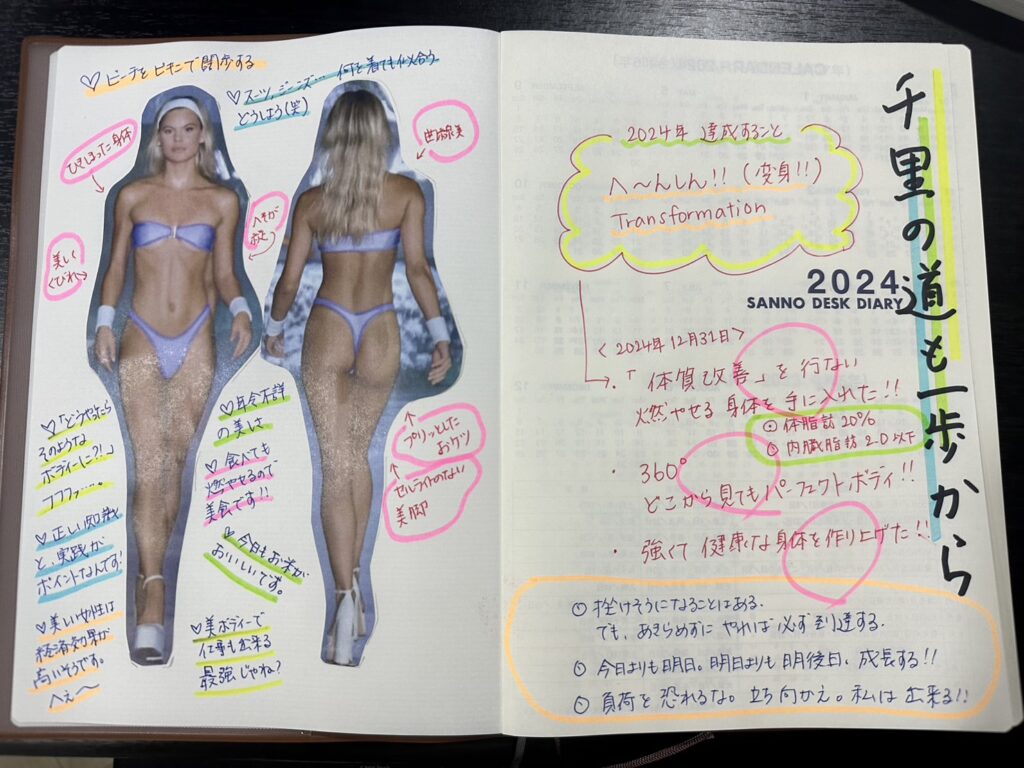 ♡ビーチを ビキニで闊歩する
♡スーツ、ジーンズ… 何を着ても似合う
どうしよう(笑)
ひきしまった身体
背筋美
へそが
美しく
くびれ
♡「どうやったら
そのような
ボディーに?!」
フフフッ…。
♡正しい知識
と、実践が
ポイントなんです!
♡美しい女性は
経済効果が
高いそうです。
へぇ〜
♡年令不詳
の美しさ
♡食べても
燃やせるので
美食です!!
♡今日もお米が
おいしいです。
♡美ボディーで
仕事も出来る
最強じゃね?
プリッとした
おケツ
セルライトのない
美脚
2024年 達成すること
へ〜んしん!! (変身!!)
Transformation
2024
SANNO DESK DIARY
千里の道も一歩から
<2024年12月31日>
・「体質改善」を行ない
燃やせる 身体を 手に入れた!!
⊙体脂肪 20%
⊙内臓脂肪 2.0以下
・360°
どこから見てもパーフェクトボディ!!
・強くて 健康な身体を作り上げた!!
⊙挫けそうになることはある。
でも、あきらめずに やれば必ず到達する。
⊙今日よりも明日。明日よりも明後日、成長する!!
⊙負荷を恐れるな。立ち向かえ。私は出来る!!